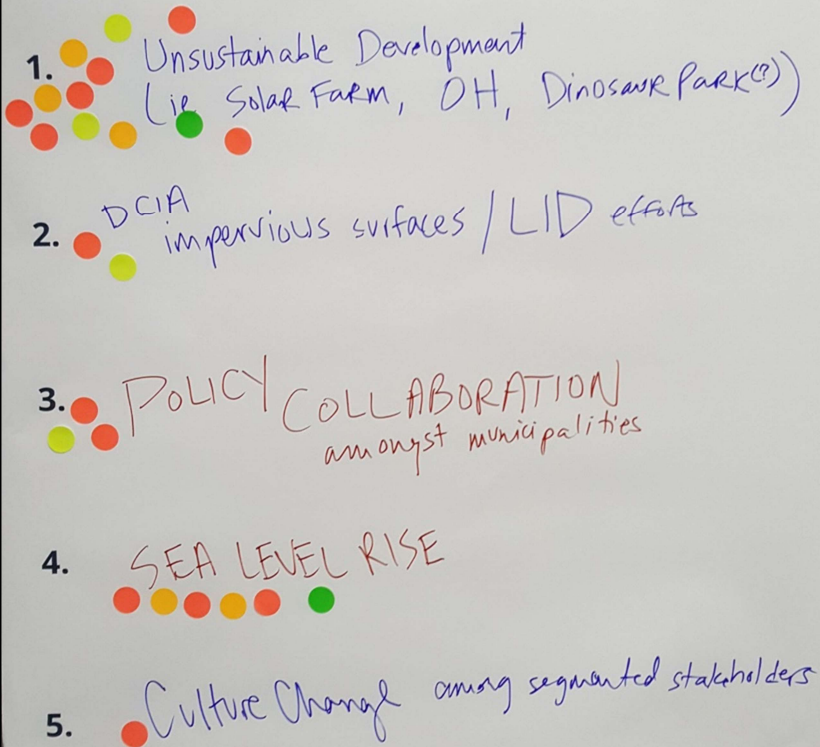 1. Unsustainable Development
(ie Solar Farm, OH, Dinosaur Park(?))
2. DCIA
impervious surfaces / LID efforts
3. POLICY COLLABORATION
amongst municipalities
4. SEA LEVEL RISE
5. Culture Change among segmented stakeholders